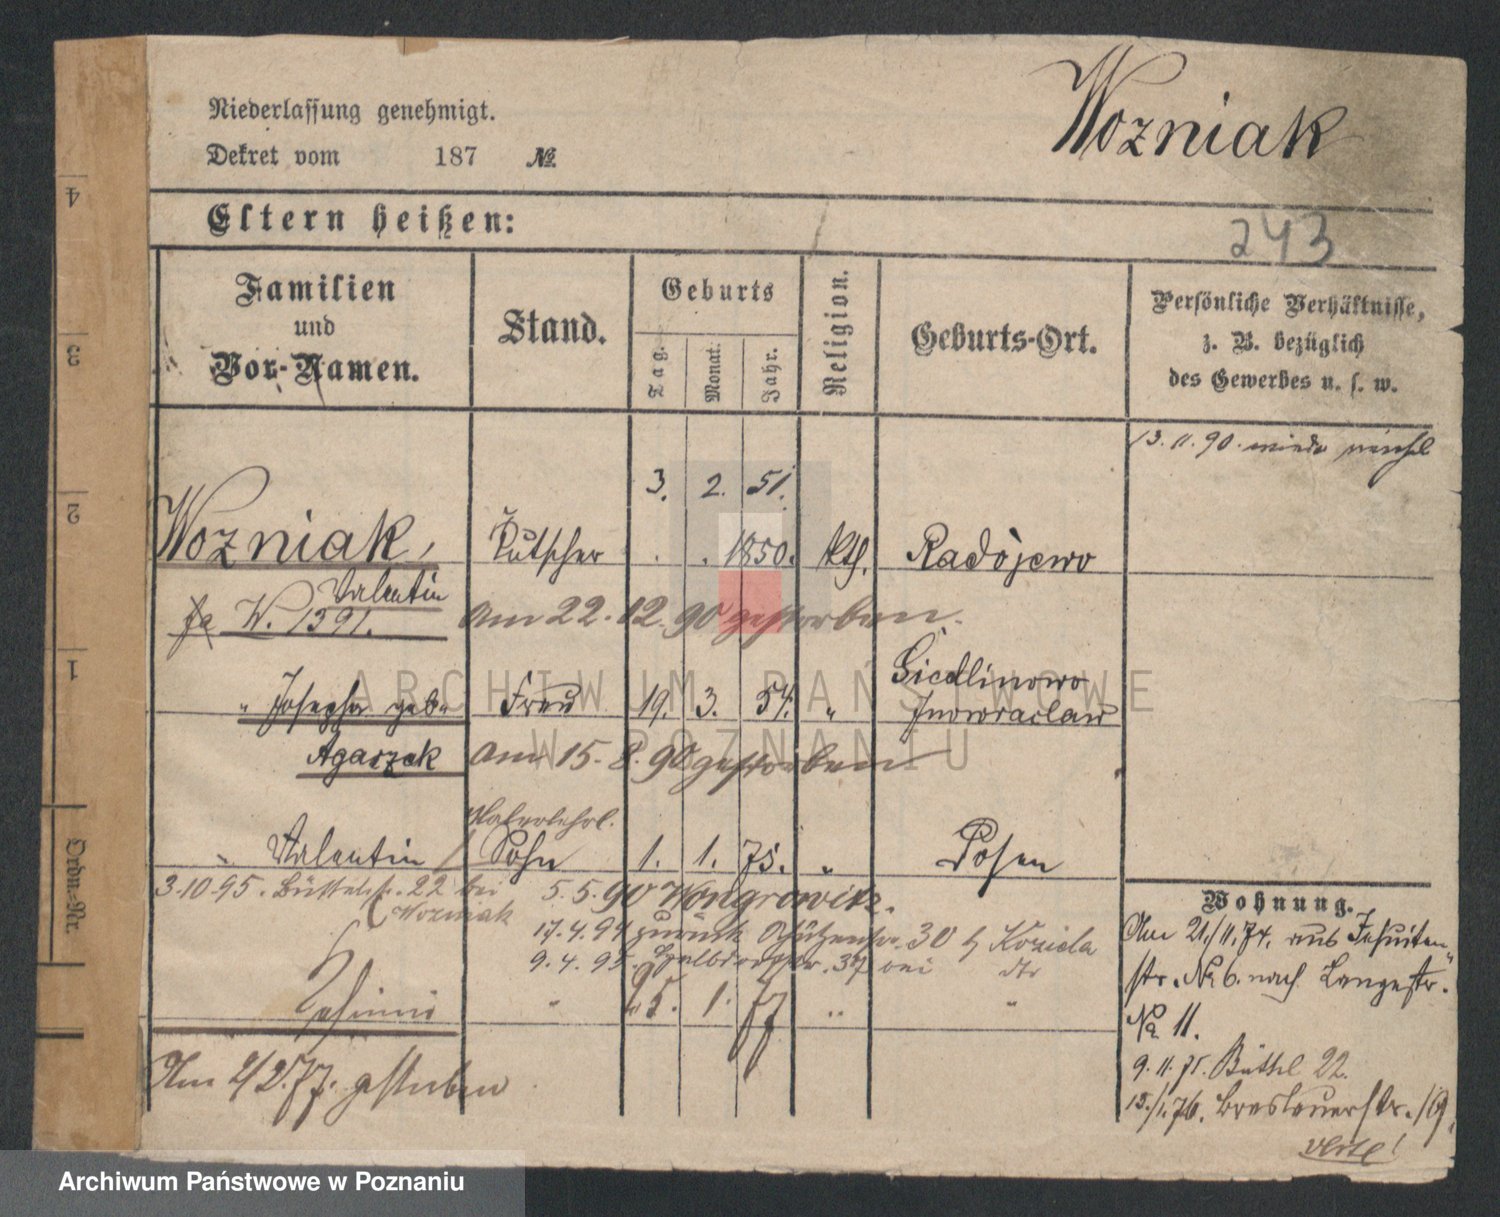 Wozniak
Niederlassung genehmigt.
Dekret vom 187 №
Eltern heißen:
243
Familien und Vor-Namen.
Stand.
Geburts
Tag.
Monat.
Jahr.
Religion.
Geburts-Ort.
Persönliche Verhältnisse, z. B. bezüglich des Gewerbes u. s. w.
13. 11. 90.
3. 2. 51.
Wozniak, Kutscher . . 1850. kth. Radojewo
Valentin
W. 1391.
am 22. 12. 90 gestorben.
" Josepha geb. Frau 19. 3. 54. " Giedlinowo
Inowraclaw
Agaszak
am 15. 8. 90 gestorben
" Valentin Sohn 1. 1. 75. " Posen
3.10.95. Büttelstr. 22 bei Wozniak
5.5.90 Wongrowitz.
17.4.94 zurück Schützenstr. 30 b Koziela
9.4.95. 37 bei
" 5. 1. 77 " "
Am 2/2. 77. gestorben
Wohnung.
Am 21./11. 74. aus Jesuiten-
str. No 6. nach Langestr.
No 11.
9. 11. 75. Büttel 22.
15./1. 76. Breslauerstr. 19.
Ordn.-Nr.
1
2
3
4
ARCHIWUM PAŃSTWOWE
W POZNANIU
Archiwum Państwowe w Poznaniu